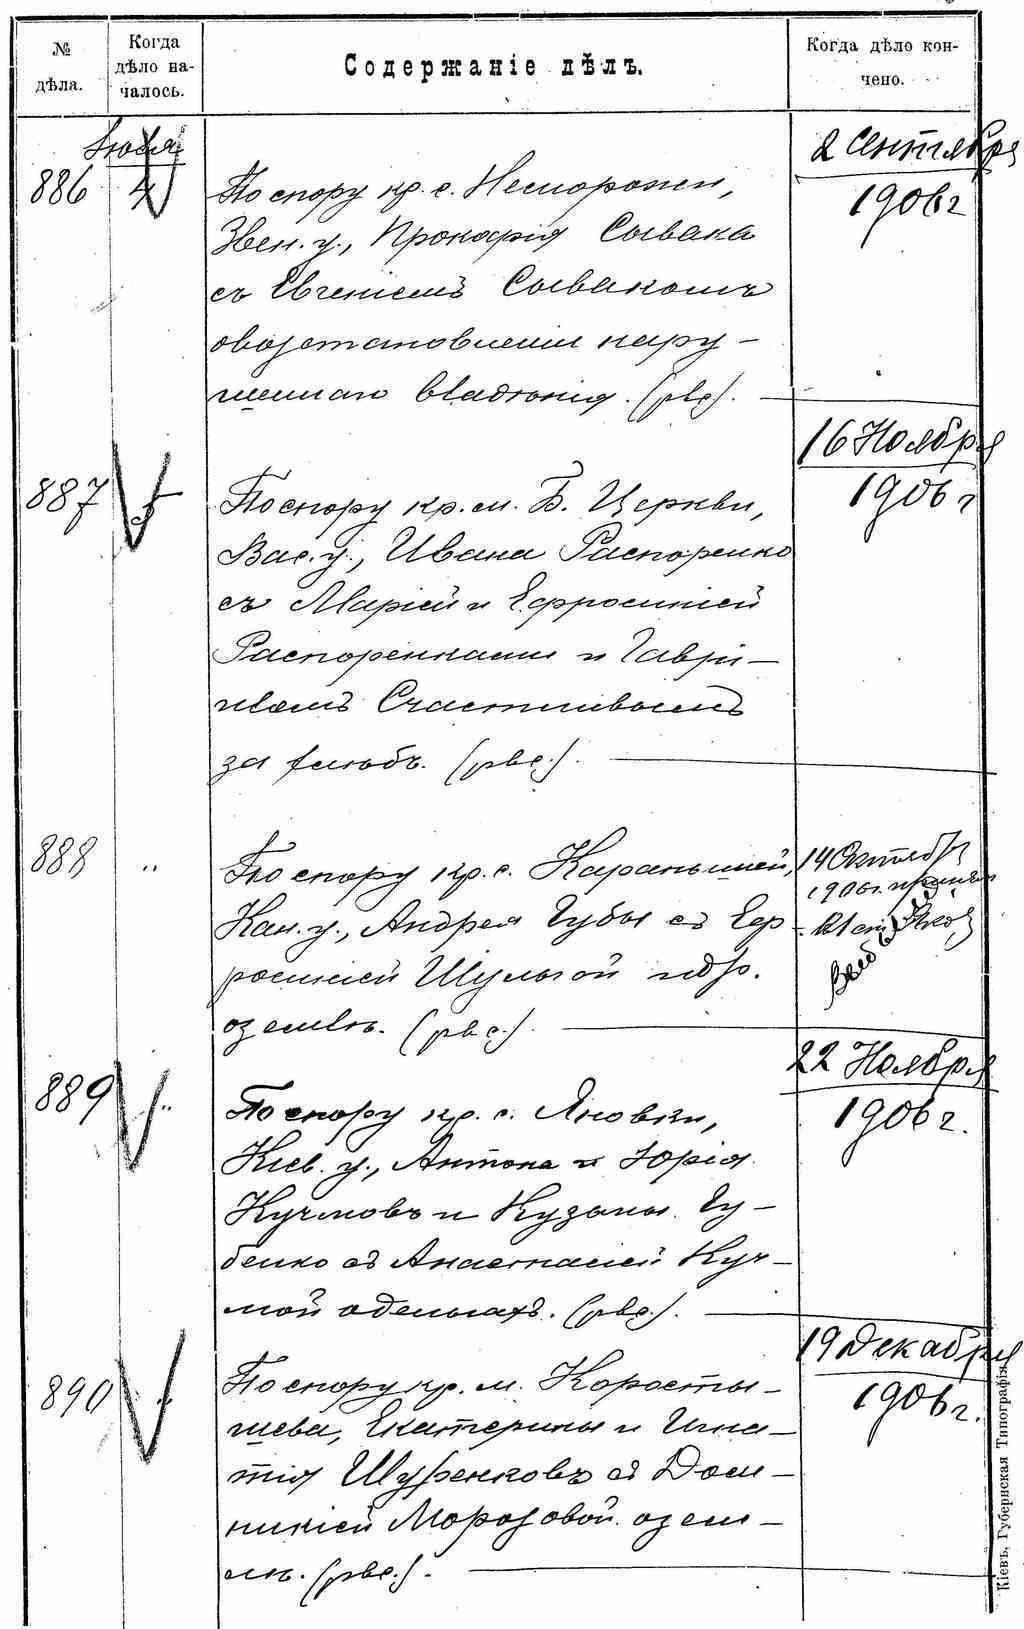 №
дѣла.
Когда
дѣло на-
чалось.
Содержаніе дѣлъ.
Когда дѣло кон-
чено.
Іюля
886
4
По спору кр. с. Неморожи,
Звен. у., Прокофія Сывака
съ Евгеніемъ Сывакомъ
о возстановленіи нару-
шеннаго владѣнія.
2 Сентября
1906 г
887
5
По спору кр. м. Б. Церкви,
Вас. у., Ивана Распоренко
съ Маріей и Ефросиніей
Распоренками и Гаврі-
иломъ Счастливымъ
за
16 Ноября
1906 г
888
"
По спору кр. с. Караньшией,
Кан. у., Андрея Губы съ Еф-
росиніей Шульгой
о землѣ.
14 Октября
1906 г.
889
"
По спору кр. с. Яновки,
Кіев. у., Антона и Юрія
Кучмовъ и Кузьмы Гу-
бенко съ Анастасіей Куч-
мой о деньгахъ.
22 Ноября
1906 г.
890
"
По спору кр. м. Коросты-
шева, Екатерины и Игна-
тія Шуренковъ съ Дом-
никіей Морозовой о зем-
лѣ.
19 Декабря
1906 г.
Кіевъ, Губернская Типографія